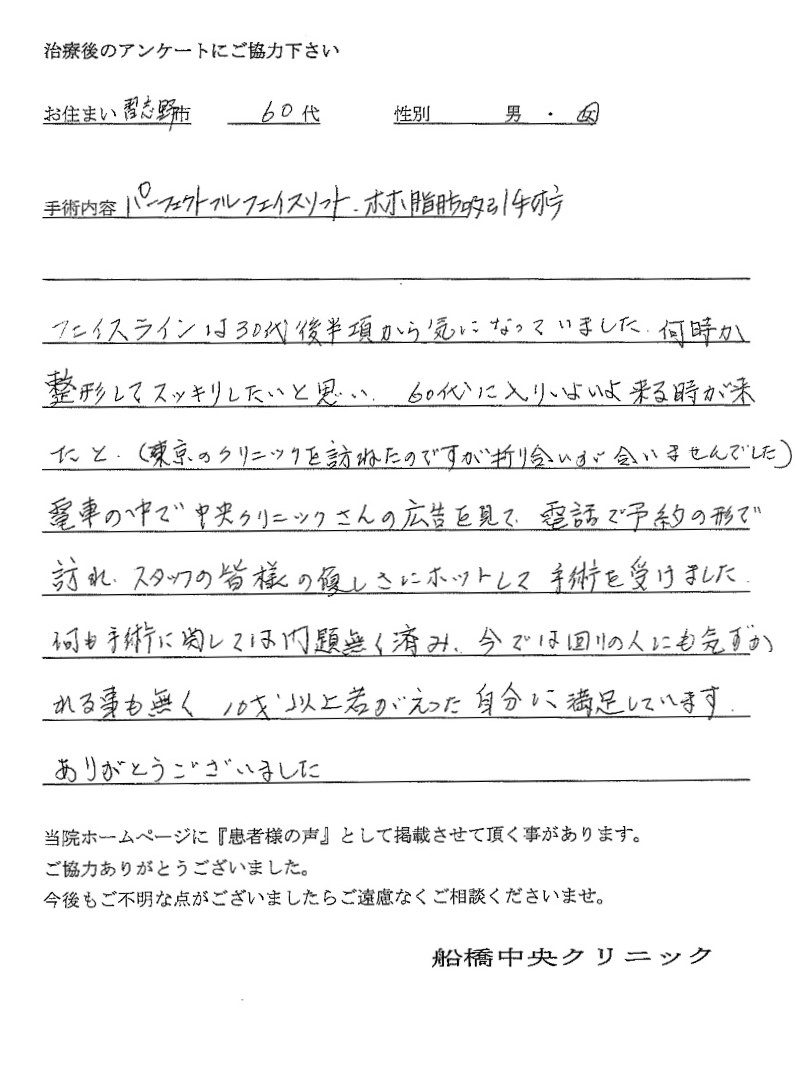 治療後のアンケートにご協力下さい
お住まい 習志野市 60代 性別 男・女
手術内容 パーフェクトフルフェイスリフト、ホホ脂肪吸引手術
フェイスラインは30代後半項から気になっていました。何時か
整形してスッキリしたいと思い、60代に入りいよいよ来る時が来
たと、(東京のクリニックを訪ねたのですが折り合いが会いませんでした)
電車の中で中央クリニックさんの広告を見て、電話で予約の形で
訪れ、スタッフの皆様の優しさにホットして手術を受けました。
何も手術に関しては問題無く済み、今では回りの人にも気ずか
れる事も無く 10才以上若がえった自分に満足しています。
ありがとうございました
当院ホームページに『患者様の声』として掲載させて頂く事があります。
ご協力ありがとうございました。
今後もご不明な点がございましたらご遠慮なくご相談くださいませ。
船橋中央クリニック